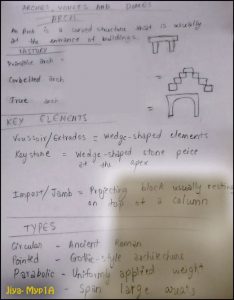 ARCHES, VAULTS AND DOMES
ARCH
An Arch is a curved structure that is usually
at the entrance of buildings.
HISTORY
Primitive arch =
Corbelled arch =
True arch =
KEY ELEMENTS
Voussoir/Extrados = Wedge-shaped elements
Keystone = Wedge-shaped stone peice
at the apex
Impost/Jamb = Projecting block usually resting
on top of a column
TYPES
Circular - Ancient Roman
Pointed - Gothic-style architecture
Parabolic - Uniformly applied weight
- Span large areas
Jiya-Myp1A